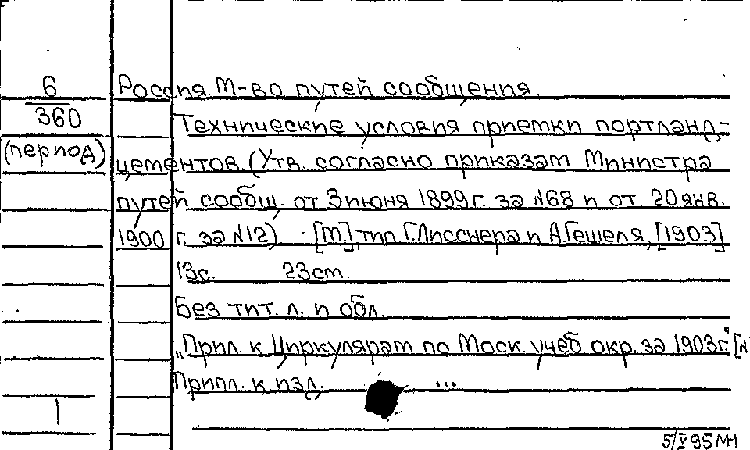 6 Россия М-во путей сообщения.
360 Технические условия приемки портланд-
(период) цементов. (Утв. согласно приказам Министра
путей сообщ. от 3 июня 1899 г. за №68 и от 20 янв.
1900 г. за №12) - [М], тип Г. Лисснера и А. Гешеля, [1903]
13с. 23см.
Без тит. л. и обл.
"Прил. к Циркулярам по Моск. учеб окр. за 1903 г."
Припл. к изд. ...
1
5/V 95